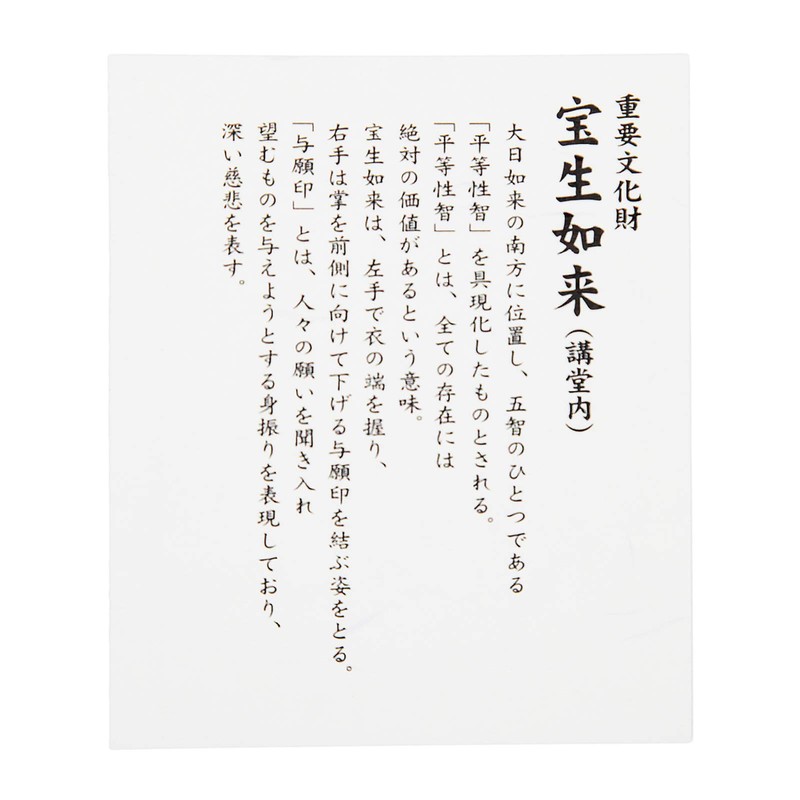 重要文化財
宝生如来（講堂内）
大日如来の南方に位置し、五智のひとつである
「平等性智」を具現化したものとされる。
「平等性智」とは、全ての存在には
絶対の価値があるという意味。
宝生如来は、左手で衣の端を握り、
右手は掌を前側に向けて下げる与願印を結ぶ姿をとる。
「与願印」とは、人々の願いを聞き入れ
望むものを与えようとする身振りを表現しており、
深い慈悲を表す。